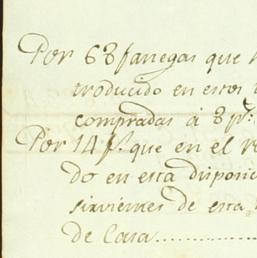 Por 68 fanegas que
producido en estos
compradas á 8 p.s
Por 14 f.s que en el
do en esta disposic
sirvientes de esta
de Casa